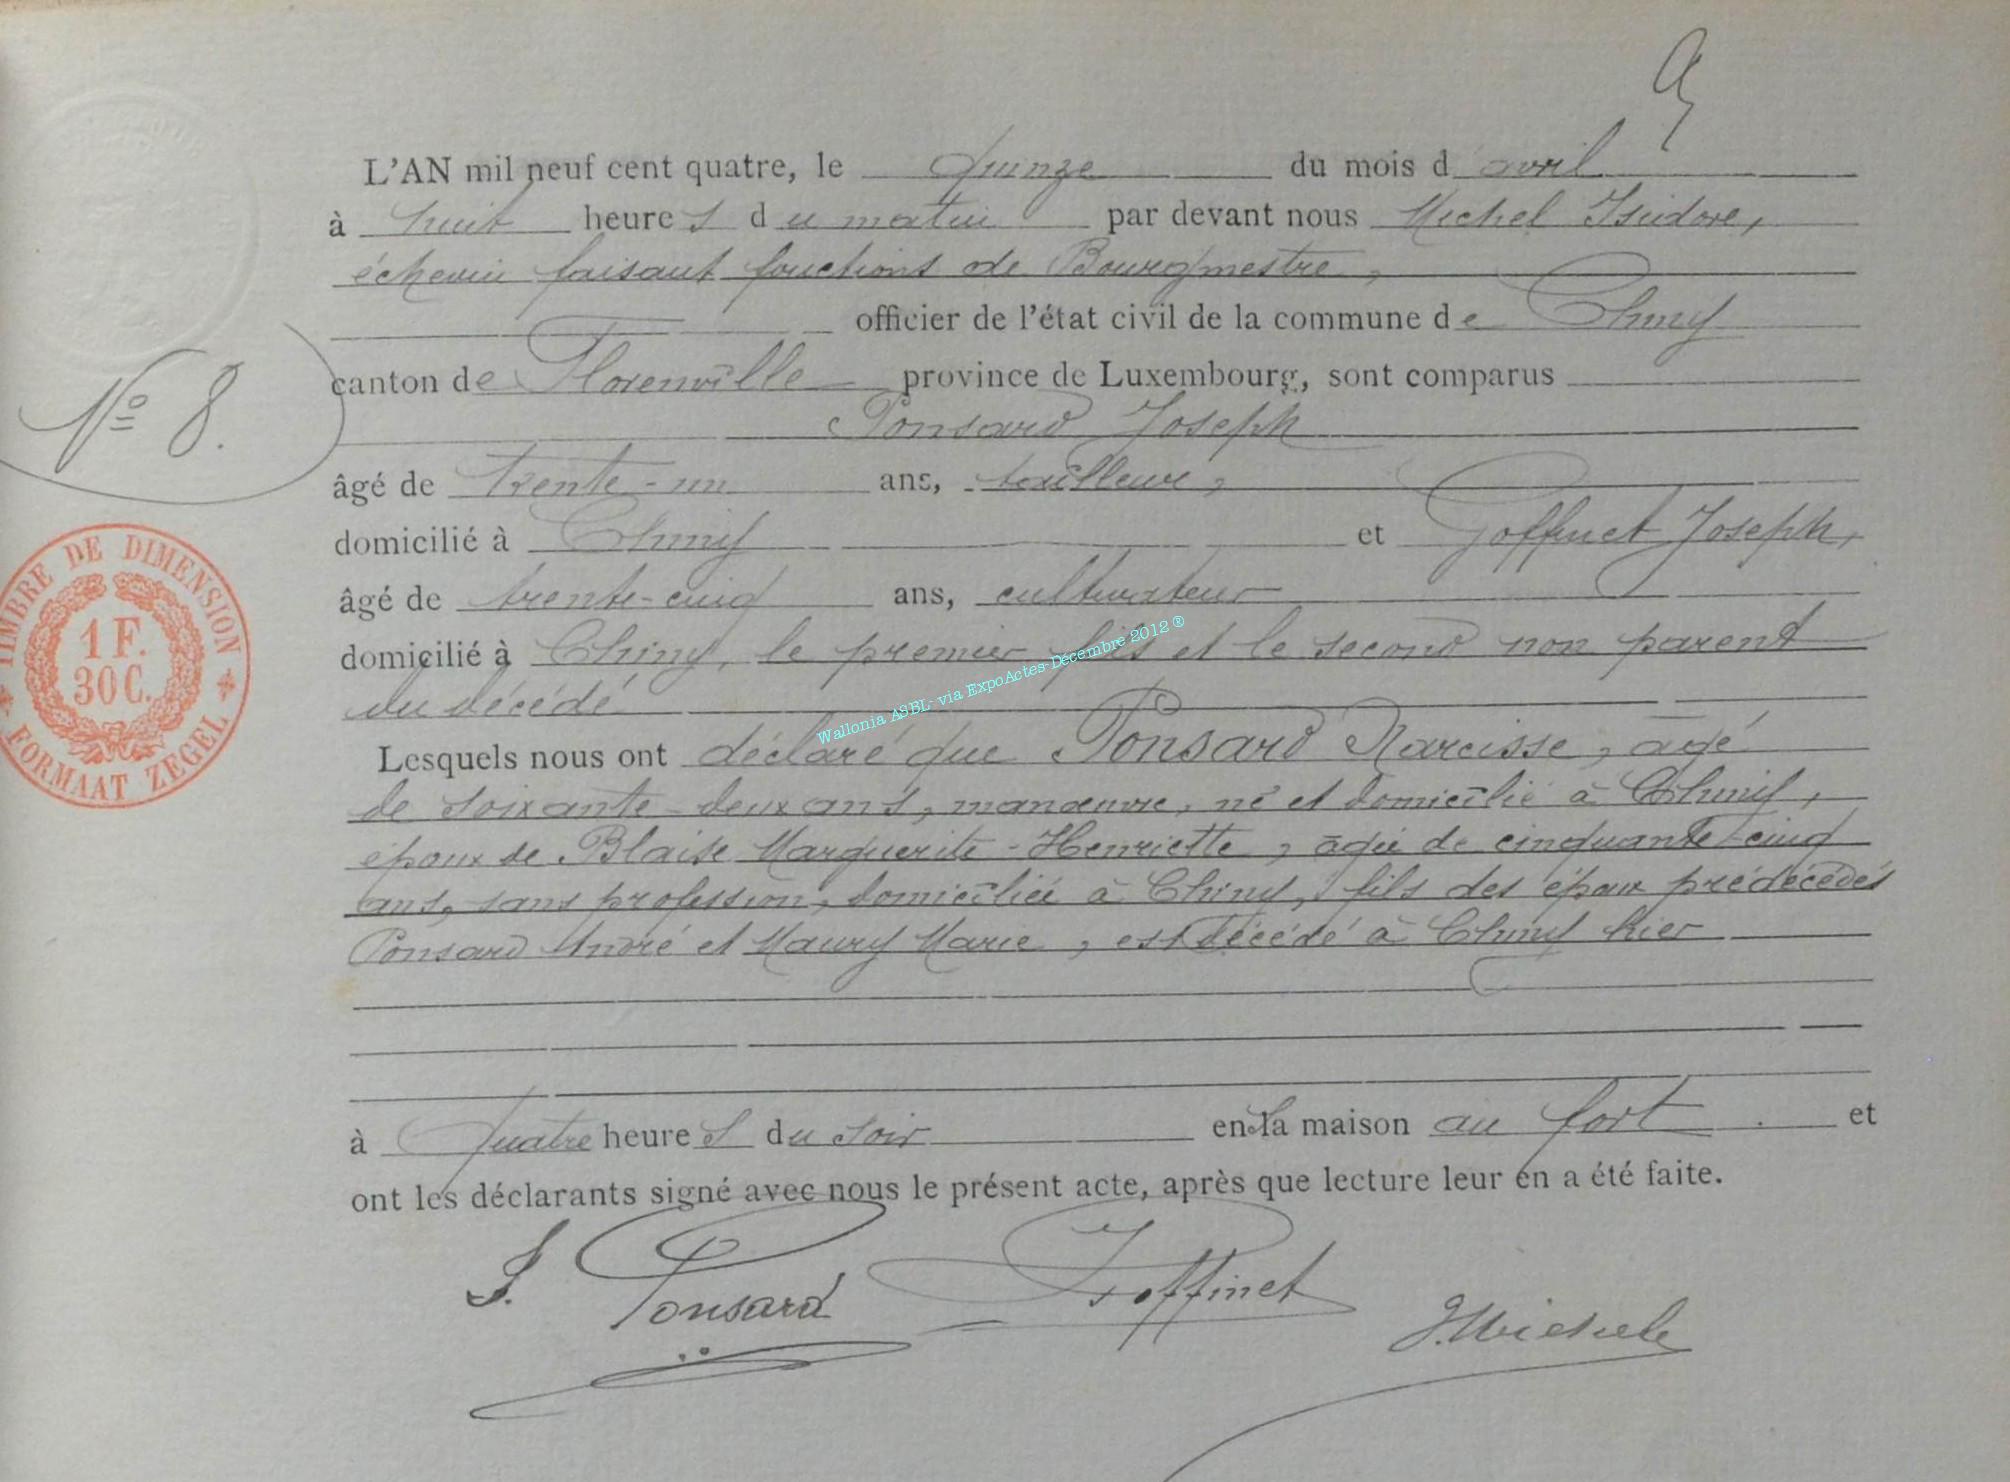 L'AN mil neuf cent quatre, le quinze du mois d'avril
à huit heures du matin par devant nous Michel Isidore,
échevin faisant fonctions de Bourgmestre,
officier de l'état civil de la commune de Chiny
N° 8.
canton de Florenville province de Luxembourg, sont comparus
Ponsard Joseph
âgé de trente-un ans, tailleur,
domicilié à Chiny et Goffinet Joseph,
âgé de trente-cinq ans, cultivateur
domicilié à Chiny, le premier fils et le second non parent
du décédé
Lesquels nous ont déclaré que Ponsard Narcisse, âgé
de soixante-deux ans, manœuvre, né et domicilié à Chiny,
époux de Blaise Marguerite-Henriette, âgée de cinquante-cinq
ans, sans profession, domiciliée à Chiny, fils des époux prédécédés
Ponsard André et Maury Marie, est décédé à Chiny hier
à quatre heures du soir en sa maison au fort et
ont les déclarants signé avec nous le présent acte, après que lecture leur en a été faite.
J. Ponsard Goffinet I. Michel
TIMBRE DE DIMENSION
1 F.
30 C.
FORMAAT ZEGEL
Wallonia ASBL- via ExpoActes-Décembre 2012 ®